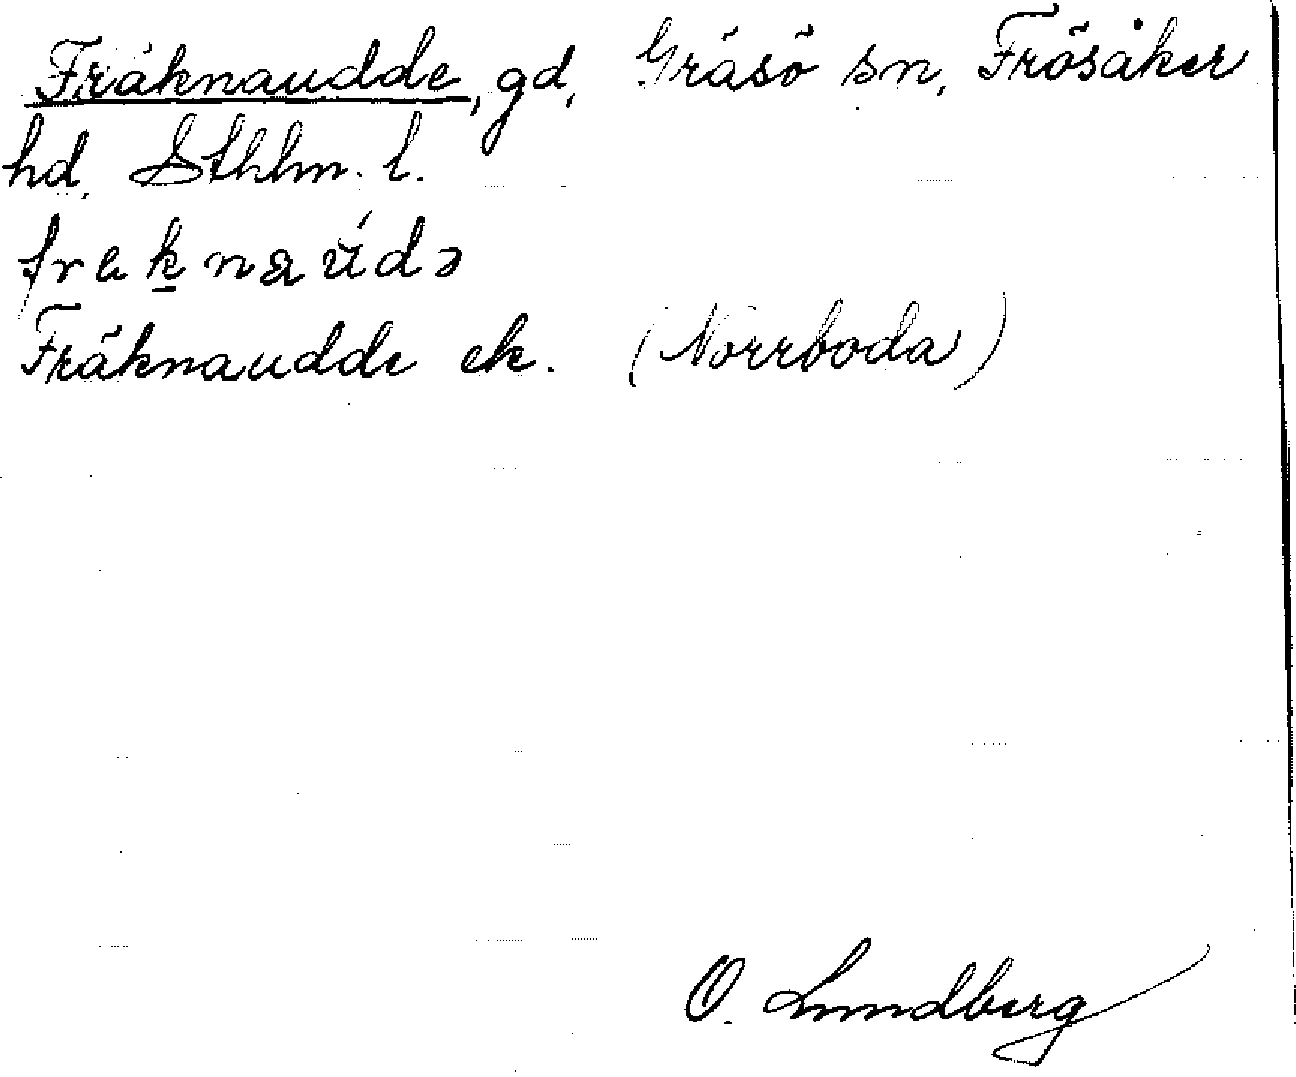 Fräknaudde, gd, Gräsö sn, Frösåker
hd. Sthlm. l.
Fräknaudde ek. (Norrboda)
O. Lundberg